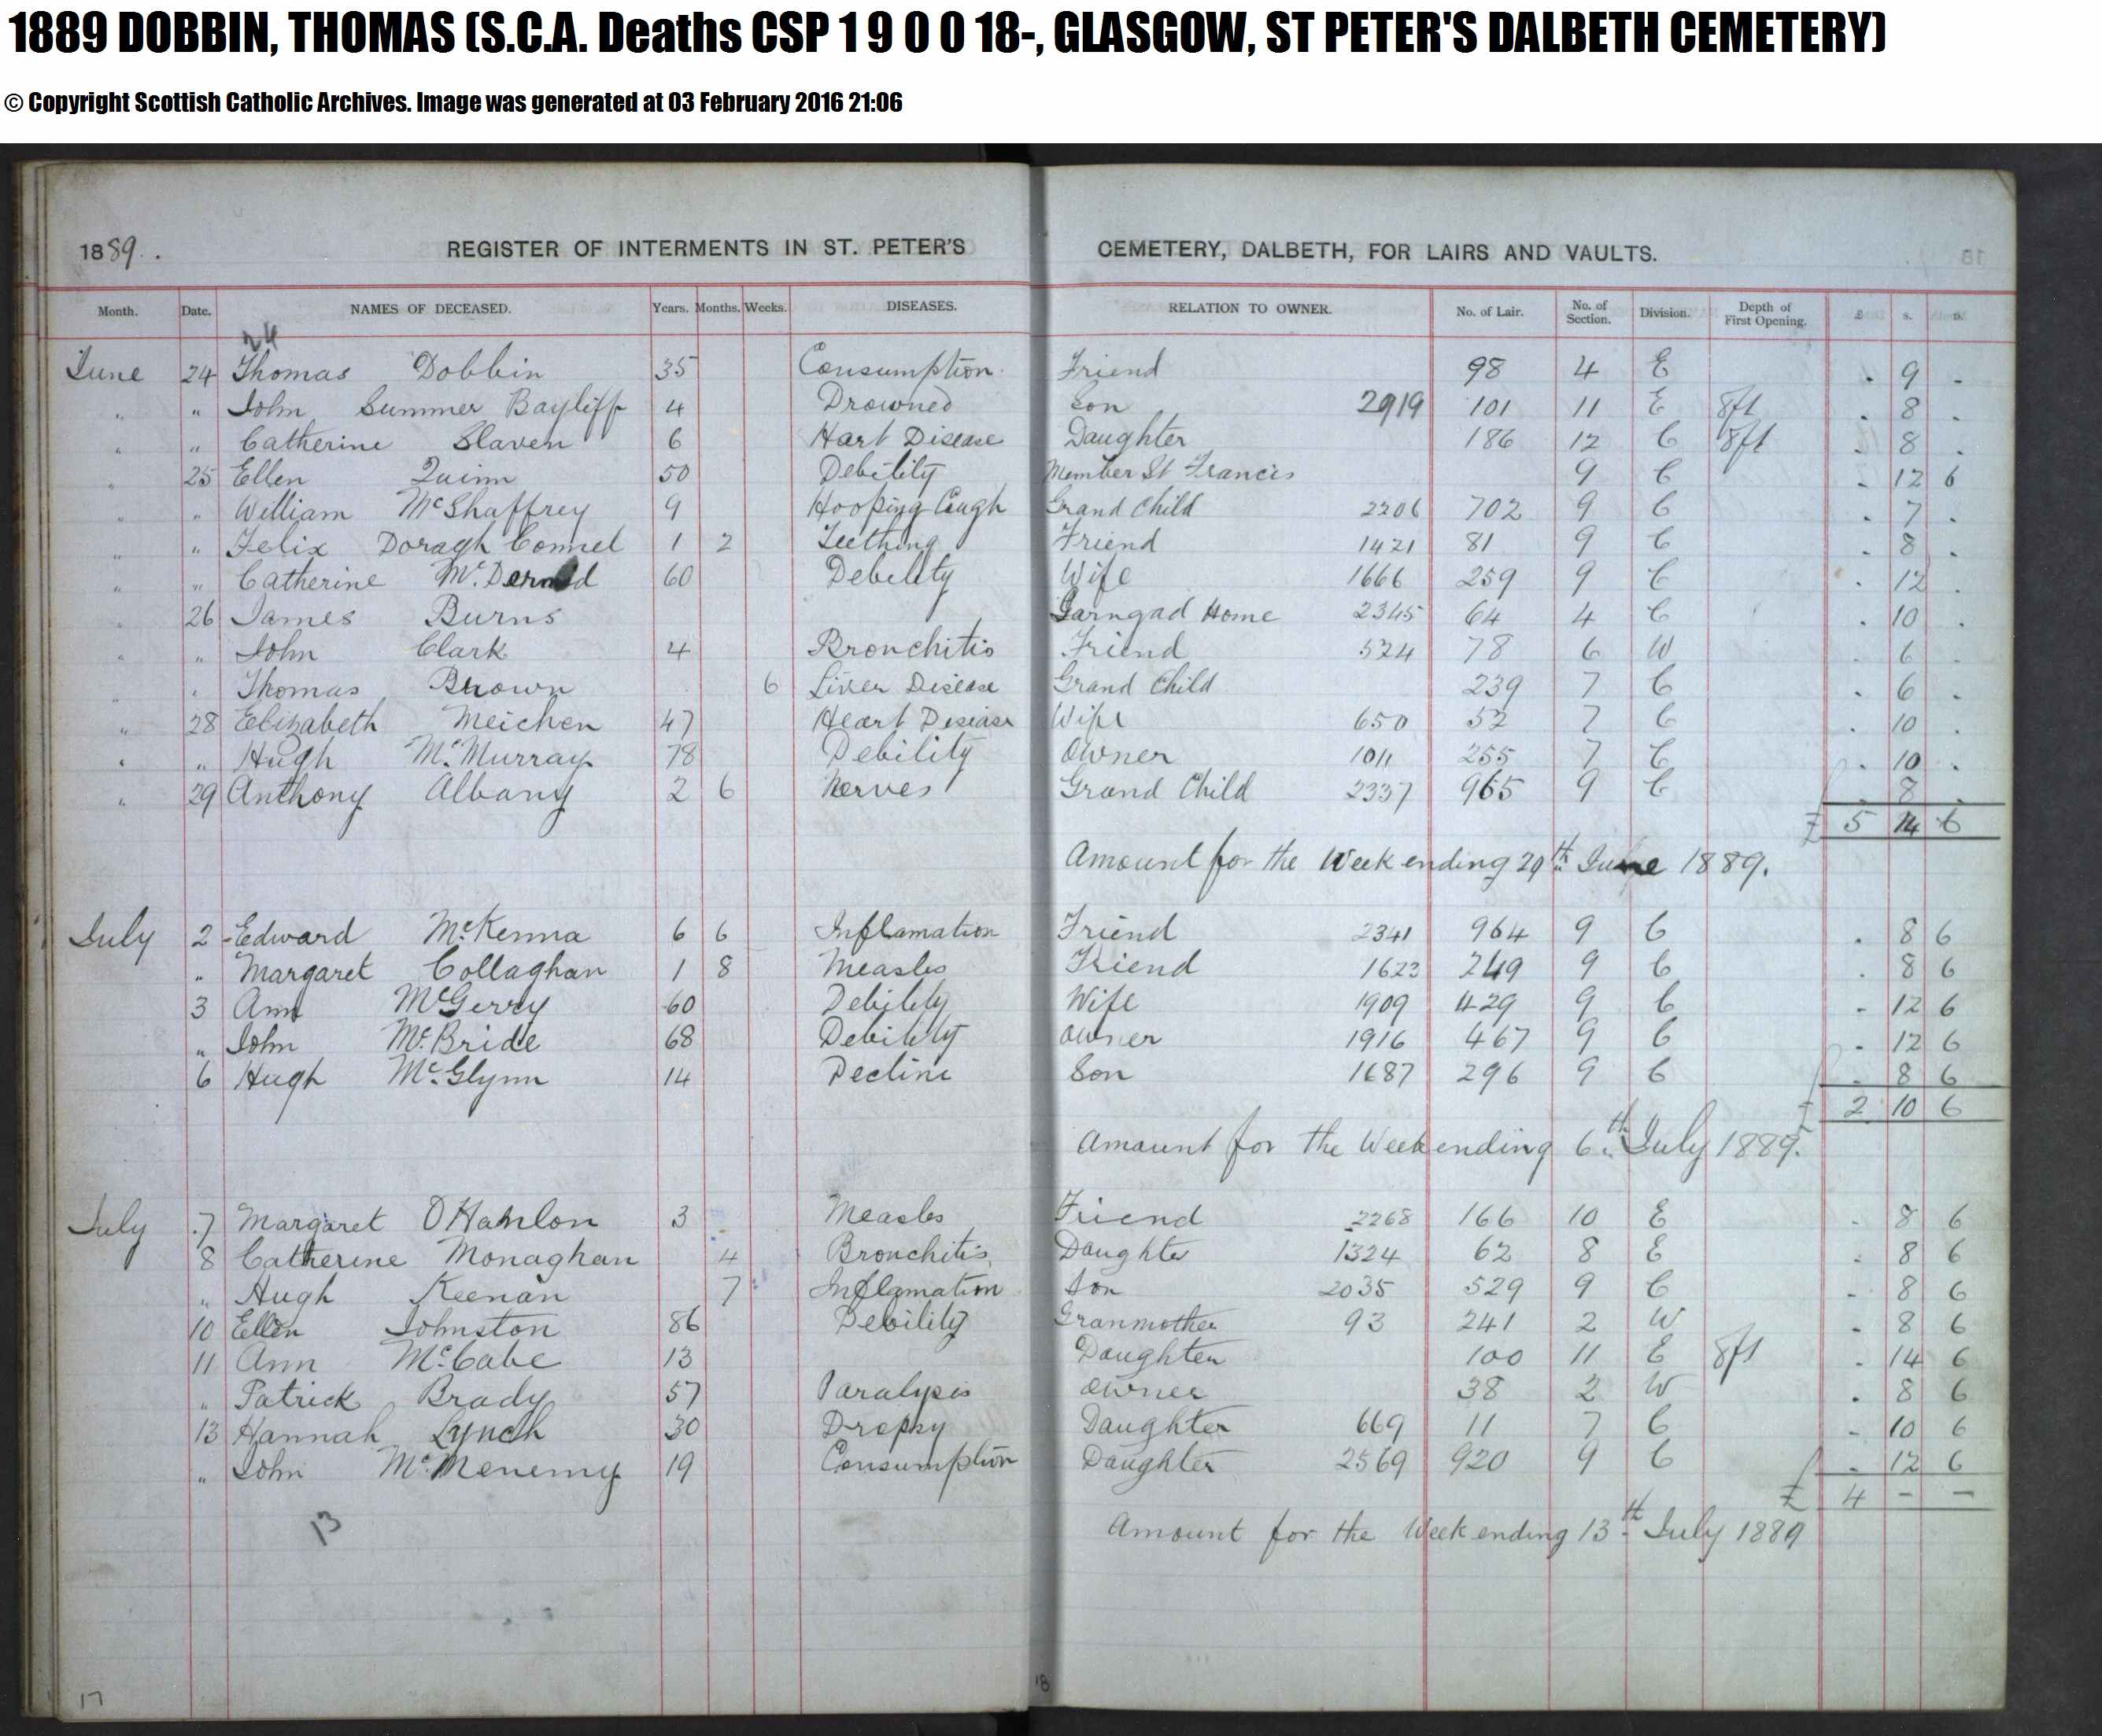 1889 DOBBIN, THOMAS (S.C.A. Deaths CSP 1 9 0 0 18-, GLASGOW, ST PETER'S DALBETH CEMETERY)
© Copyright Scottish Catholic Archives. Image was generated at 03 February 2016 21:06
1889. REGISTER OF INTERMENTS IN ST. PETER'S CEMETERY, DALBETH, FOR LAIRS AND VAULTS.
Month. Date. NAMES OF DECEASED. Years. Months. Weeks. DISEASES. RELATION TO OWNER. No. of Lair. No. of Section. Division. Depth of First Opening. £ s. D.
24
June 24 Thomas Dobbin 35 Consumption Friend 98 4 E . 9 -
" " John Summer Bayliff 4 Drowned Son 2919 101 11 E 8ft . 8 .
" " Catherine Slaven 6 Hart Disease Daughter 186 12 C 8ft . 8 .
" 25 Ellen Quinn 50 Debility Member St Francis 9 C - 12 6
" " William McShaffrey 9 Hooping Cough Grand Child 2206 702 9 C . 7 .
" " Felix Doragh Connel 1 2 Teething Friend 1421 81 9 C . 8 .
" " Catherine McDermid 60 Debility Wife 1666 259 9 C . 12 .
" 26 James Burns Garngad Home 2345 64 4 C . 10 .
" " John Clark 4 Bronchitis Friend 524 78 6 W . 6 .
" " Thomas Brown 6 Liver Disease Grand Child 239 7 C . 6 .
" 28 Elizabeth Meichen 47 Heart Disease Wife 650 52 7 C . 10 .
" " Hugh McMurray 78 Debility Owner 1011 255 7 C . 10 .
" 29 Anthony Albany 2 6 Nerves Grand Child 2337 965 9 C . 8 .
£ 5 14 6
Amount for the Week ending 29th June 1889.
July 2 Edward McKenna 6 6 Inflamation Friend 2341 964 9 C . 8 6
" Margaret Collaghan 1 8 Measles Friend 1623 249 9 C . 8 6
3 Ann McGerry 60 Debility Wife 1909 429 9 C - 12 6
" John McBride 68 Debility owner 1916 467 9 C - 12 6
6 Hugh McGlynn 14 Decline Son 1687 296 9 C . 8 6
£ 2 10 6
Amount for the Week ending 6th July 1889.
July 7 Margaret O'Hanlon 3 Measles Friend 2268 166 10 E - 8 6
8 Catherine Monaghan 4 Bronchitis Daughter 1324 62 8 E - 8 6
" Hugh Keenan 7 Inflamation Son 2035 529 9 C - 8 6
10 Ellen Johnston 86 Debility Granmother 93 241 2 W - 8 6
11 Ann McCabe 13 Daughter 100 11 E 8ft - 14 6
" Patrick Brady 57 Paralysis owner 38 2 W . 8 6
13 Hannah Lynch 30 Dropsy Daughter 669 11 7 C - 10 6
" John McMenemy 19 Consumption Daughter 2569 920 9 C - 12 6
£ 4 - -
13
Amount for the Week ending 13th July 1889
17 18